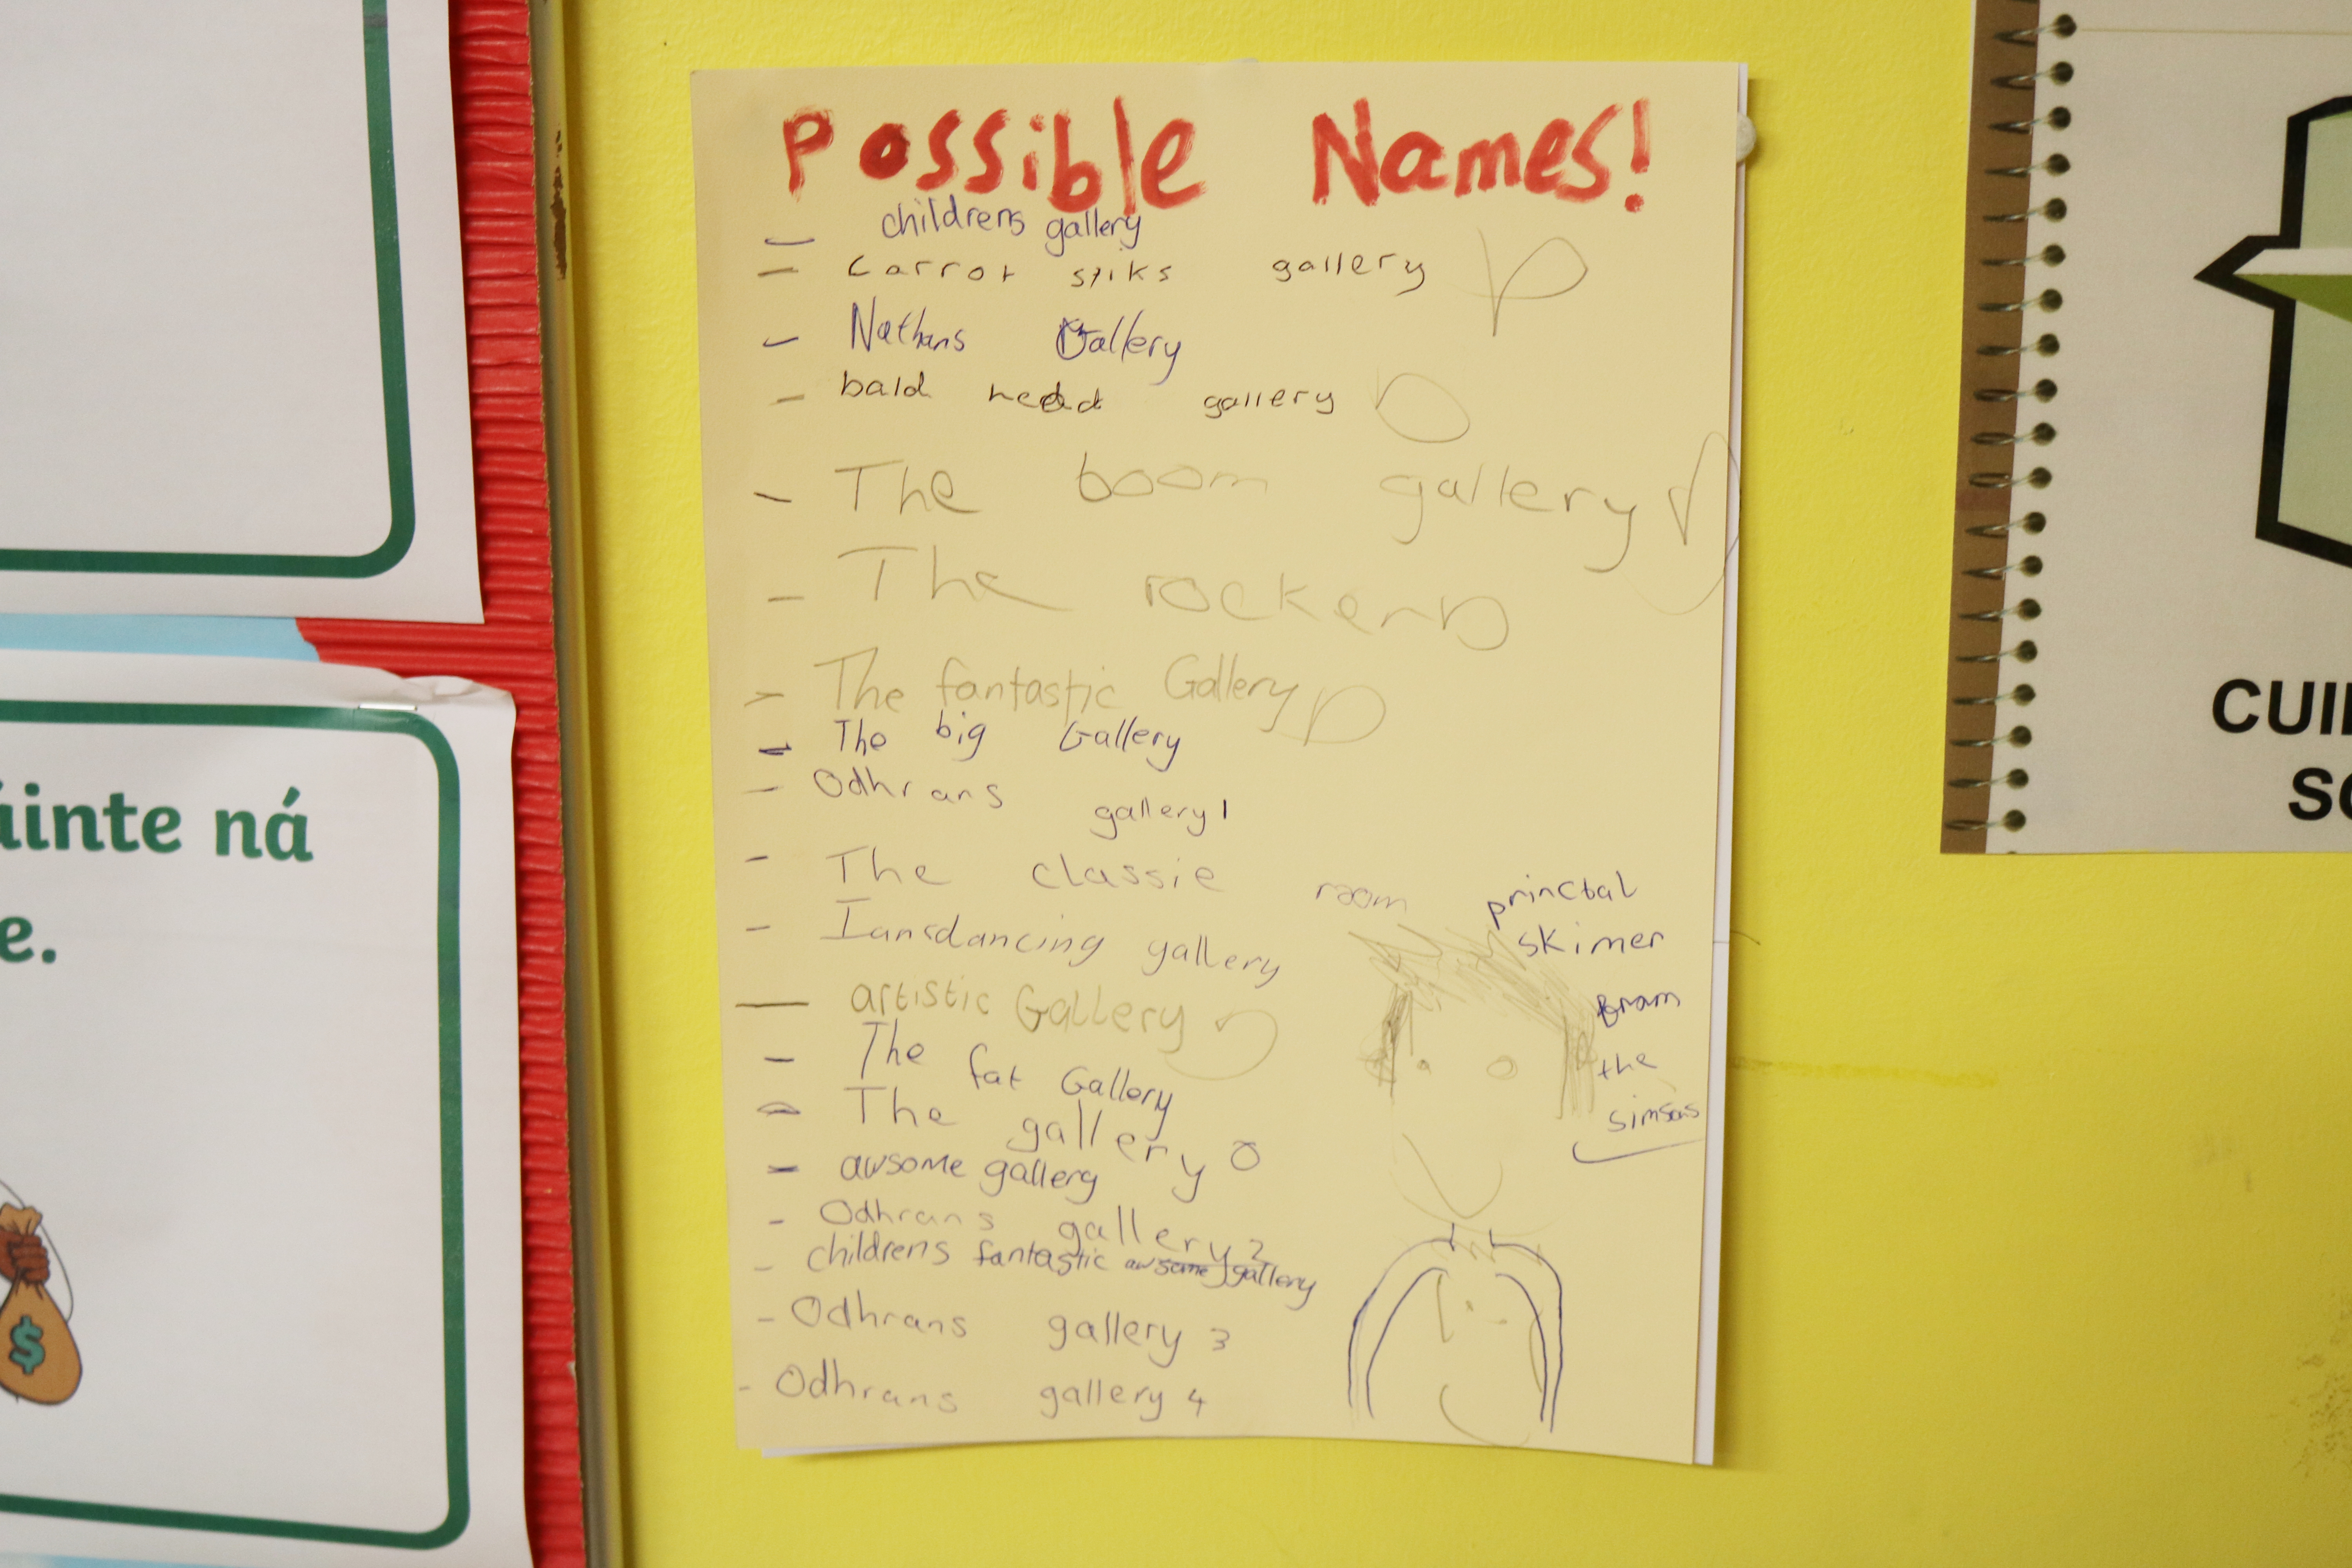 Possible Names!
- childrens gallery
- carrot stiks gallery
- Nathans Gallery
- bald head gallery
- The boom gallery
- The rocker
- The fantastic Gallery
- The big Gallery
- Odhrans gallery 1
- The classic room
- Iansdancing gallery
- artistic Gallery
- The fat Gallery
- The gallery
- awsome gallery
- Odhrans gallery 2
- childrens fantastic awsome gallery
- Odhrans gallery 3
- Odhrans gallery 4
princbal
skimer
from
the
simsons
áinte ná
e.
$
CUI
SC